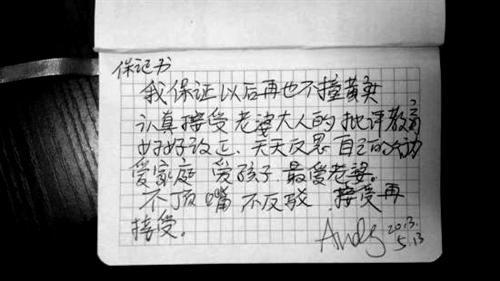 保证书
我保证以后再也不撞黄奕
认真接受老婆大人的批评教育
好好改正、天天反思自己的
爱家庭 爱孩子 最爱老婆。
不顶嘴 不反驳 接受再
接受。
Andy 2013.
5.13